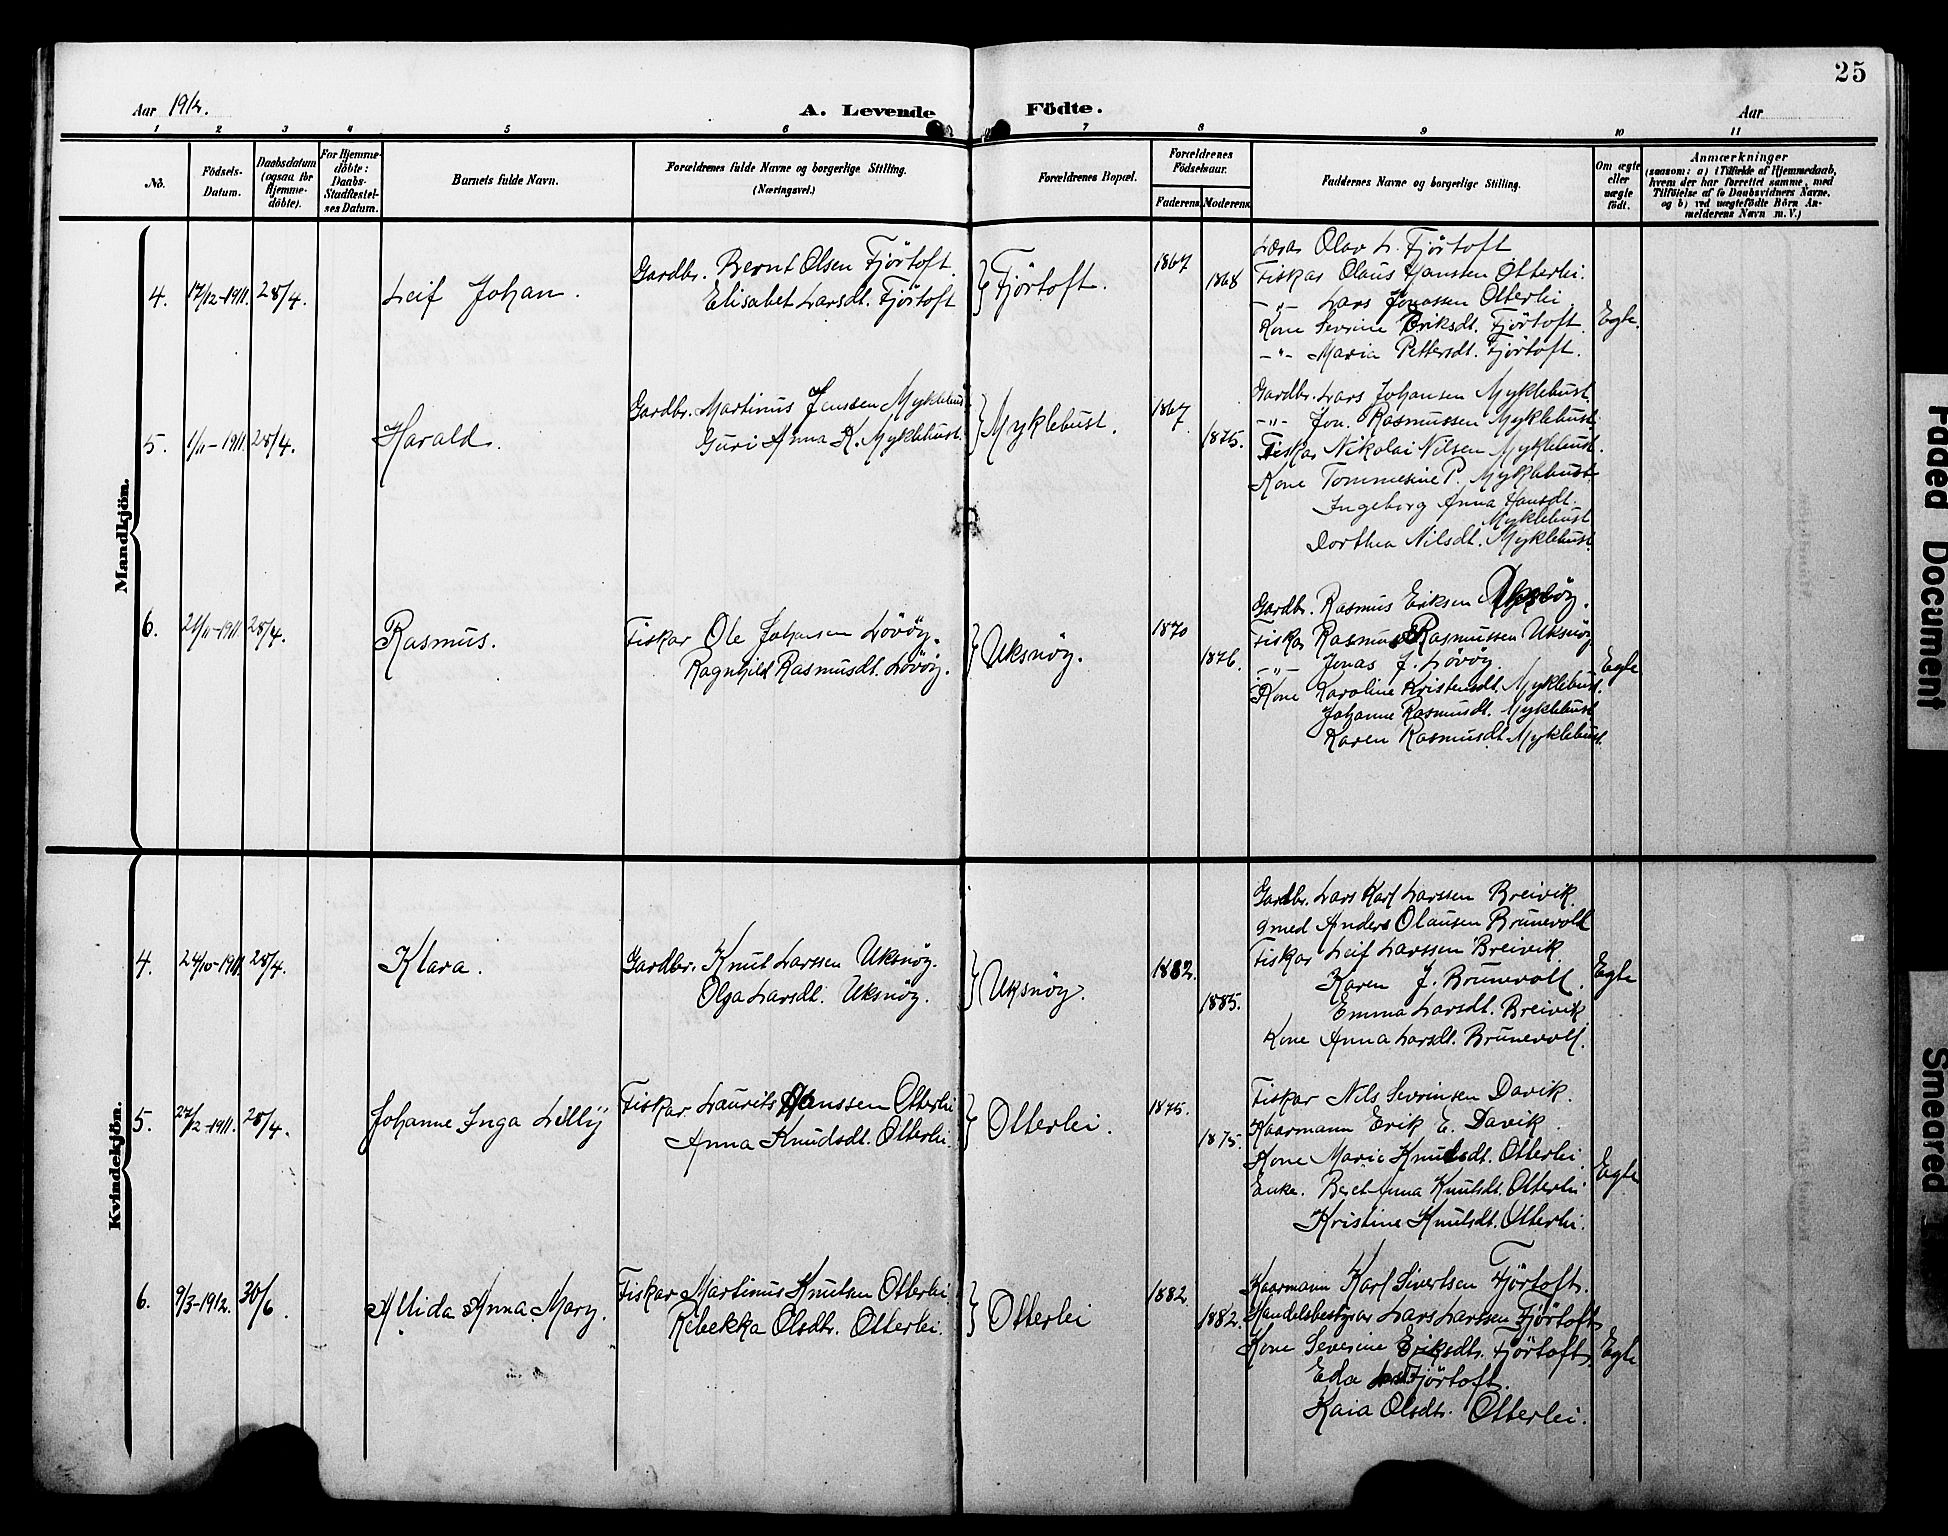 25
Aar 1912.
A. Levende Födte.
Aar
1 2 3 4 5 6 7 8 9 10 11
No.
Födsels-Datum.
Daabsdatum (ogsaa for Hjemme-döbte).
For Hjemme-döbte: Daabs-Stadfæstel-ses Datum.
Barnets fulde Navn.
Forældrenes fulde Navne og borgerlige Stilling. (Næringsvei.)
Forældrenes Bopæl.
Forældrenes Födselsaar.
Faderens.
Moderens.
Faddernes Navne og borgerlige Stilling.
Om ægte eller uægte födt.
Anmærkninger
(saasom: a) i Tilfælde af Hjemmedaab, hvem der har forrettet samme, med Tilföielse af to Daabsvidners Navne, og b) ved uægtefödte Börn An-melderens Navn m. V.)
Mandkjön.
4. 17/12-1911. 28/4. Leif Johan.
Gardbr. Bernt Olsen Fjörtoft.
Elisabet Larsdt. Fjörtoft
Fjörtoft. 1867 1868
Læra Olav L. Fjörtoft
Fiskar Olaus Hanssen Otterlei.
-"- Lars Jonassen Otterlei.
Kone Sevrine Eriksdt. Fjörtoft.
-"- Maria Pettersdt. Fjörtoft.
Egte.
5. 1/11-1911. 28/4. Harald.
Gardbr. Martinus Janssen Myklebust
Guri Anna K. Myklebust.
Myklebust. 1867. 1875.
Gardbr. Lars Johansen Myklebust.
-"- Jon. Rasmussen Myklebust.
Fiskar Nikolai Nilsen Myklebust.
Kone Tommesine P. Myklebust.
Ingeborg Anna Hansdt.
Myklebust
Dorthea Nilsdt. Myklebust.
6. 21/11-1911 28/4. Rasmus.
Fiskar Ole Johansen Lövöy.
Ragnhild Rasmusdt. Lövöy.
Uksnöy. 1870 1876.
Gardbr. Rasmus Eriksen
Fiskar Rasmus Rasmussen Uksnöy
-"- Jonas J. Lövöy.
Kone Karoline Kristensdt. Myklebust.
Johanne Rasmusdt. Myklebust
Karen Rasmusdt. Myklebust.
Egte
Kvindekjön.
4. 24/10-1911. 28/4. Klara.
Gardbr. Knut Larssen Uksnöy.
Olga Larsdt. Uksnöy.
Uksnöy. 1882. 1885.
Gardbr. Lars Karl Larssen Breivik.
gmed Anders Olausen Brunevoll
Fiskar Leif Larssen Breivik.
Karen J. Brunevoll.
Emma Larsdt. Breivik
Kone Anna Larsdt. Brunevoll.
Egte
5. 27/12-1911. 28/4. Johanne Inga Lilly
Fiskar Laurits Hanssen Otterlei
Anna Knudsdt. Otterlei.
Otterlei. 1875. 1875.
Fiskar Nils Sevrinsen Davik.
Kaarmann Erik E. Davik.
Kone Marie Knutsdt. Otterlei.
Enke. Beret-Anna Knutsdt. Otterlei
Kristine Knutsdt. Otterlei.
Egte
6. 9/3-1912. 30/6. Alida Anna Mary.
Fiskar Martinus Knutsen Otterlei.
Rebekka Olsdtr. Otterlei.
Otterlei 1882. 1882.
Kaarmann Karl Sivertsen Fjörtoft.
Handelsbestyrar Lars Larssen Fjörtoft
Kone Severine Eriksdtr. Fjörtoft.
Eda Fjörtoft.
Kaia Olsdtr. Otterlei.
Egte
Faded Document
Smeared